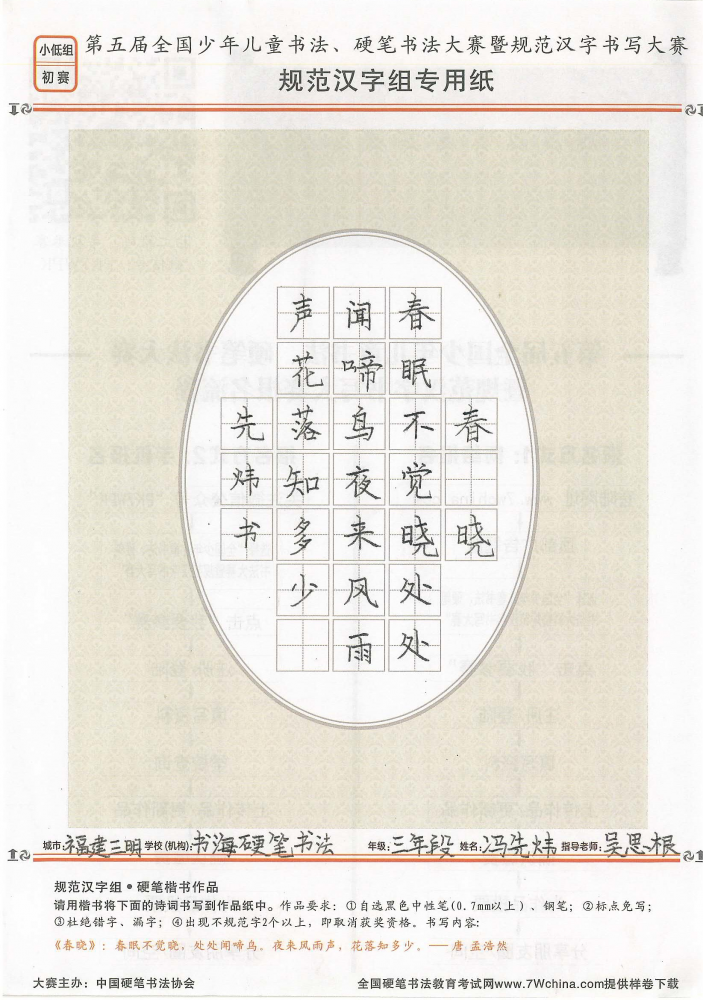 小低组
初赛
第五届全国少年儿童书法、硬笔书法大赛暨规范汉字书写大赛
规范汉字组专用纸
春晓
春眠不觉晓处处
闻啼鸟夜来风雨
声花落知多少
先炜书
城市:福建三明 学校(机构):书海硬笔书法 年级:三年段 姓名:冯先炜 指导老师:吴思根
规范汉字组•硬笔楷书作品
请用楷书将下面的诗词书写到作品纸中。作品要求:①自选黑色中性笔(0.7mm以上)、钢笔;②标点免写;
③杜绝错字、漏字;④出现不规范字2个以上,即取消获奖资格。书写内容:
《春晓》:春眠不觉晓,处处闻啼鸟。夜来风雨声,花落知多少。——唐·孟浩然
大赛主办:中国硬笔书法协会 全国硬笔书法教育考试网www.7Wchina.com提供样卷下载